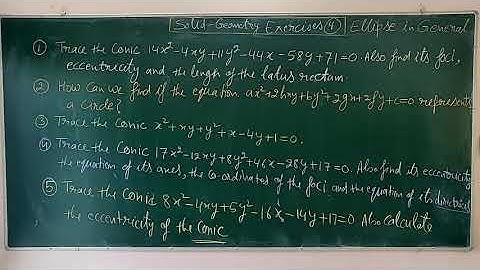 Solid-Geometry Exercises(4) Ellipse in General
① Trace the Conic 14x²-4xy+11y²-44x-58y+71=0. Also find its foci,
eccentricity and the length of the latus rectum.
② How can we find if the equation ax²+2hxy+by²+2gx+2fy+c=0 represents
a circle?
③ Trace the Conic x²+xy+y²+x-4y+1=0.
④ Trace the Conic 17x²-12xy+8y²+46x-28y+17=0. Also find its eccentricity
the equation of its axes, the co-ordinates of the foci and the equation of its directrices
⑤ Trace the Conic 8x²-4xy+5y²-16x-14y+17=0. Also calculate
the eccentricity of the conic